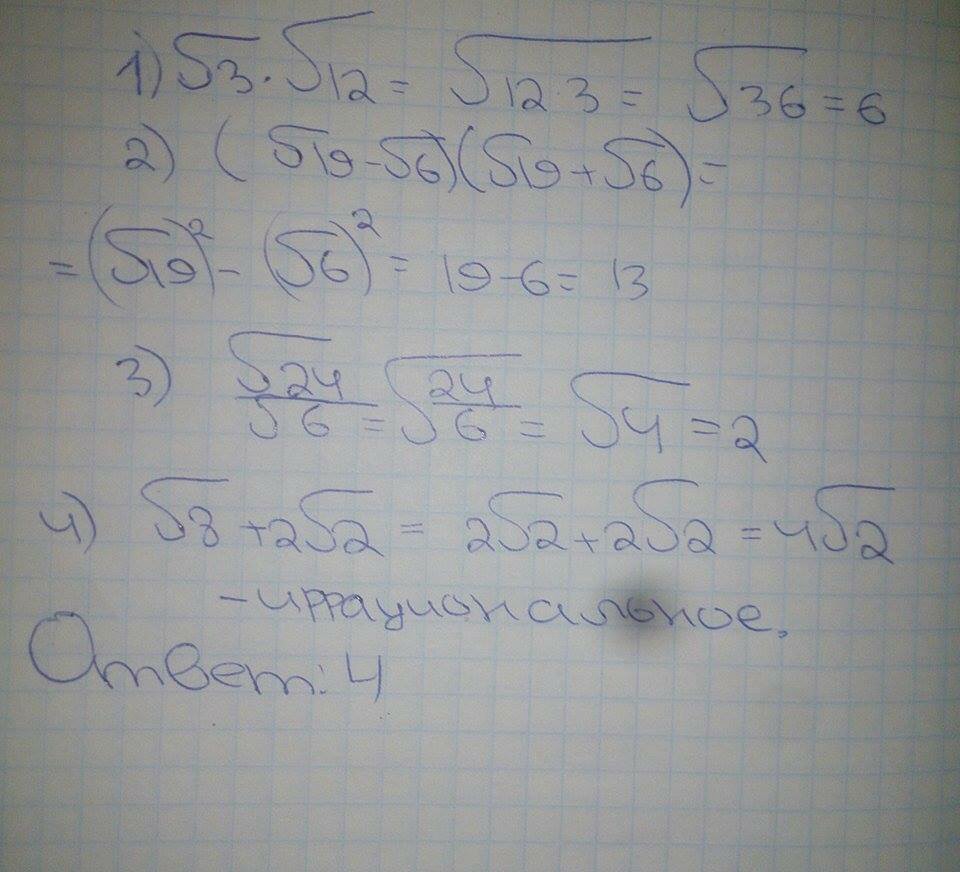 1) √3 · √12 = √12·3 = √36 = 6
2) (√19 - √6)(√19 + √6) =
= (√19)² - (√6)² = 19 - 6 = 13
3) √24/√6 = √24/6 = √4 = 2
4) √8 + 2√2 = 2√2 + 2√2 = 4√2
- иррациональное.
Ответ: 4